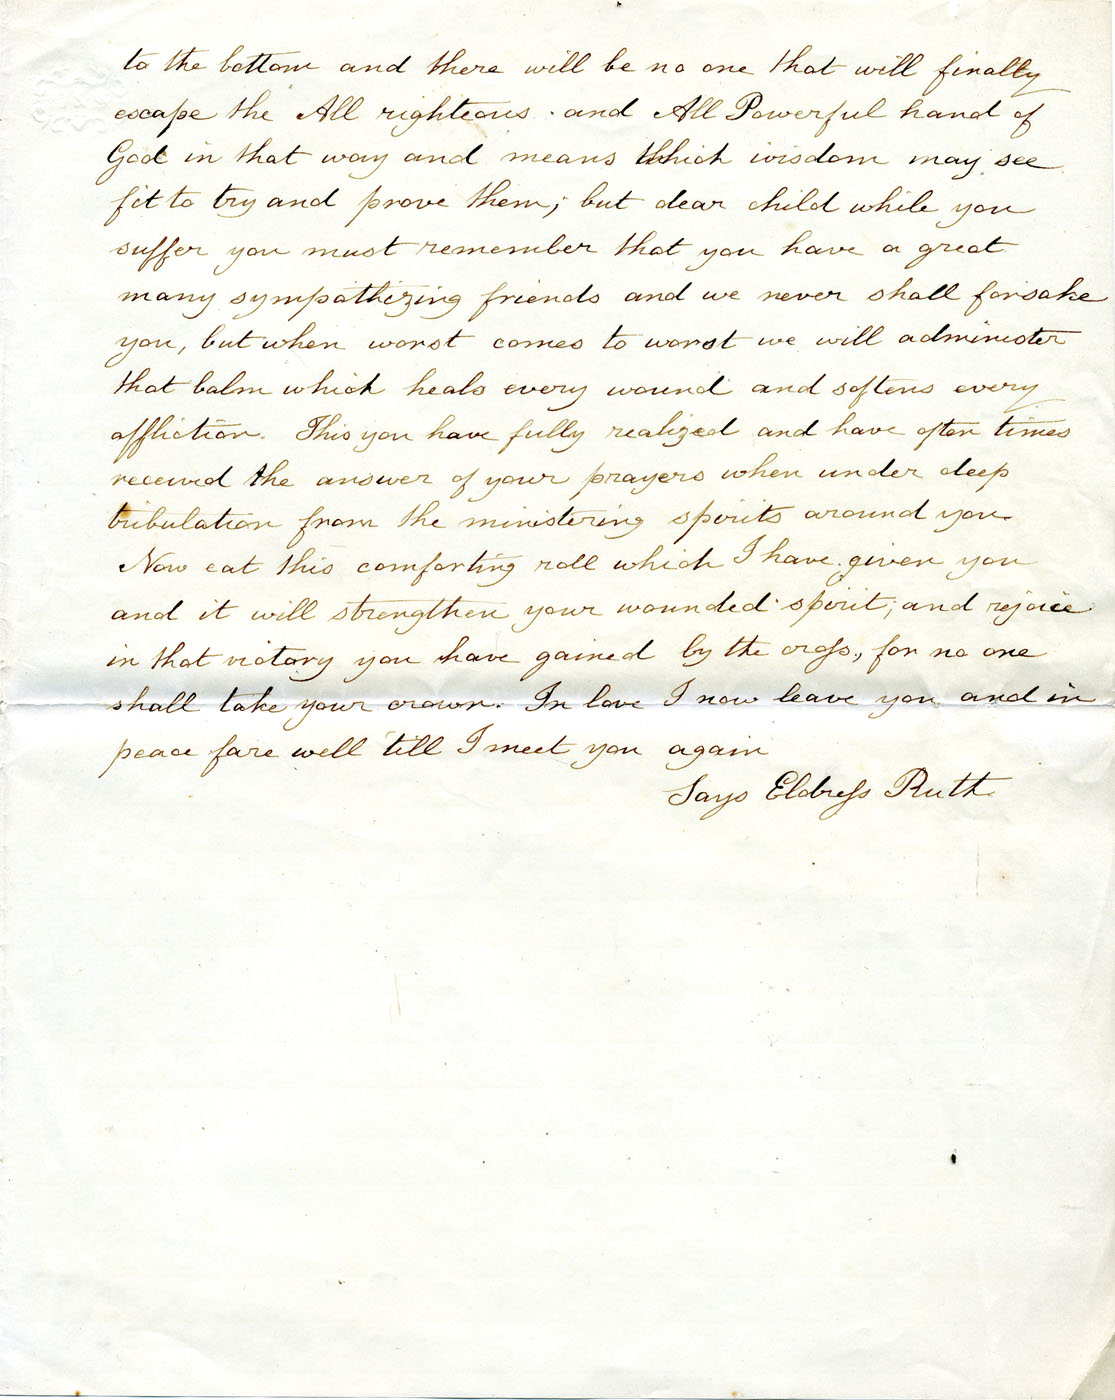 to the bottom and there will be no one that will finally
escape the All righteous and All Powerful hand of
God in that way and means which wisdom may see
fit to try and prove them; but dear child while you
suffer you must remember that you have a great
many sympathizing friends and we never shall forsake
you, but when worst comes to worst we will administer
that balm which heals every wound and softens every
affliction. This you have fully realized and have often times
received the answer of your prayers when under deep
tribulation from the ministering spirits around you.
Now eat this comforting roll which I have given you
and it will strengthen your wounded spirit; and rejoice
in that victory you have gained by the cross, for no one
shall take your crown. In love I now leave you and in
peace fare well till I meet you again
Says Eldress Ruth